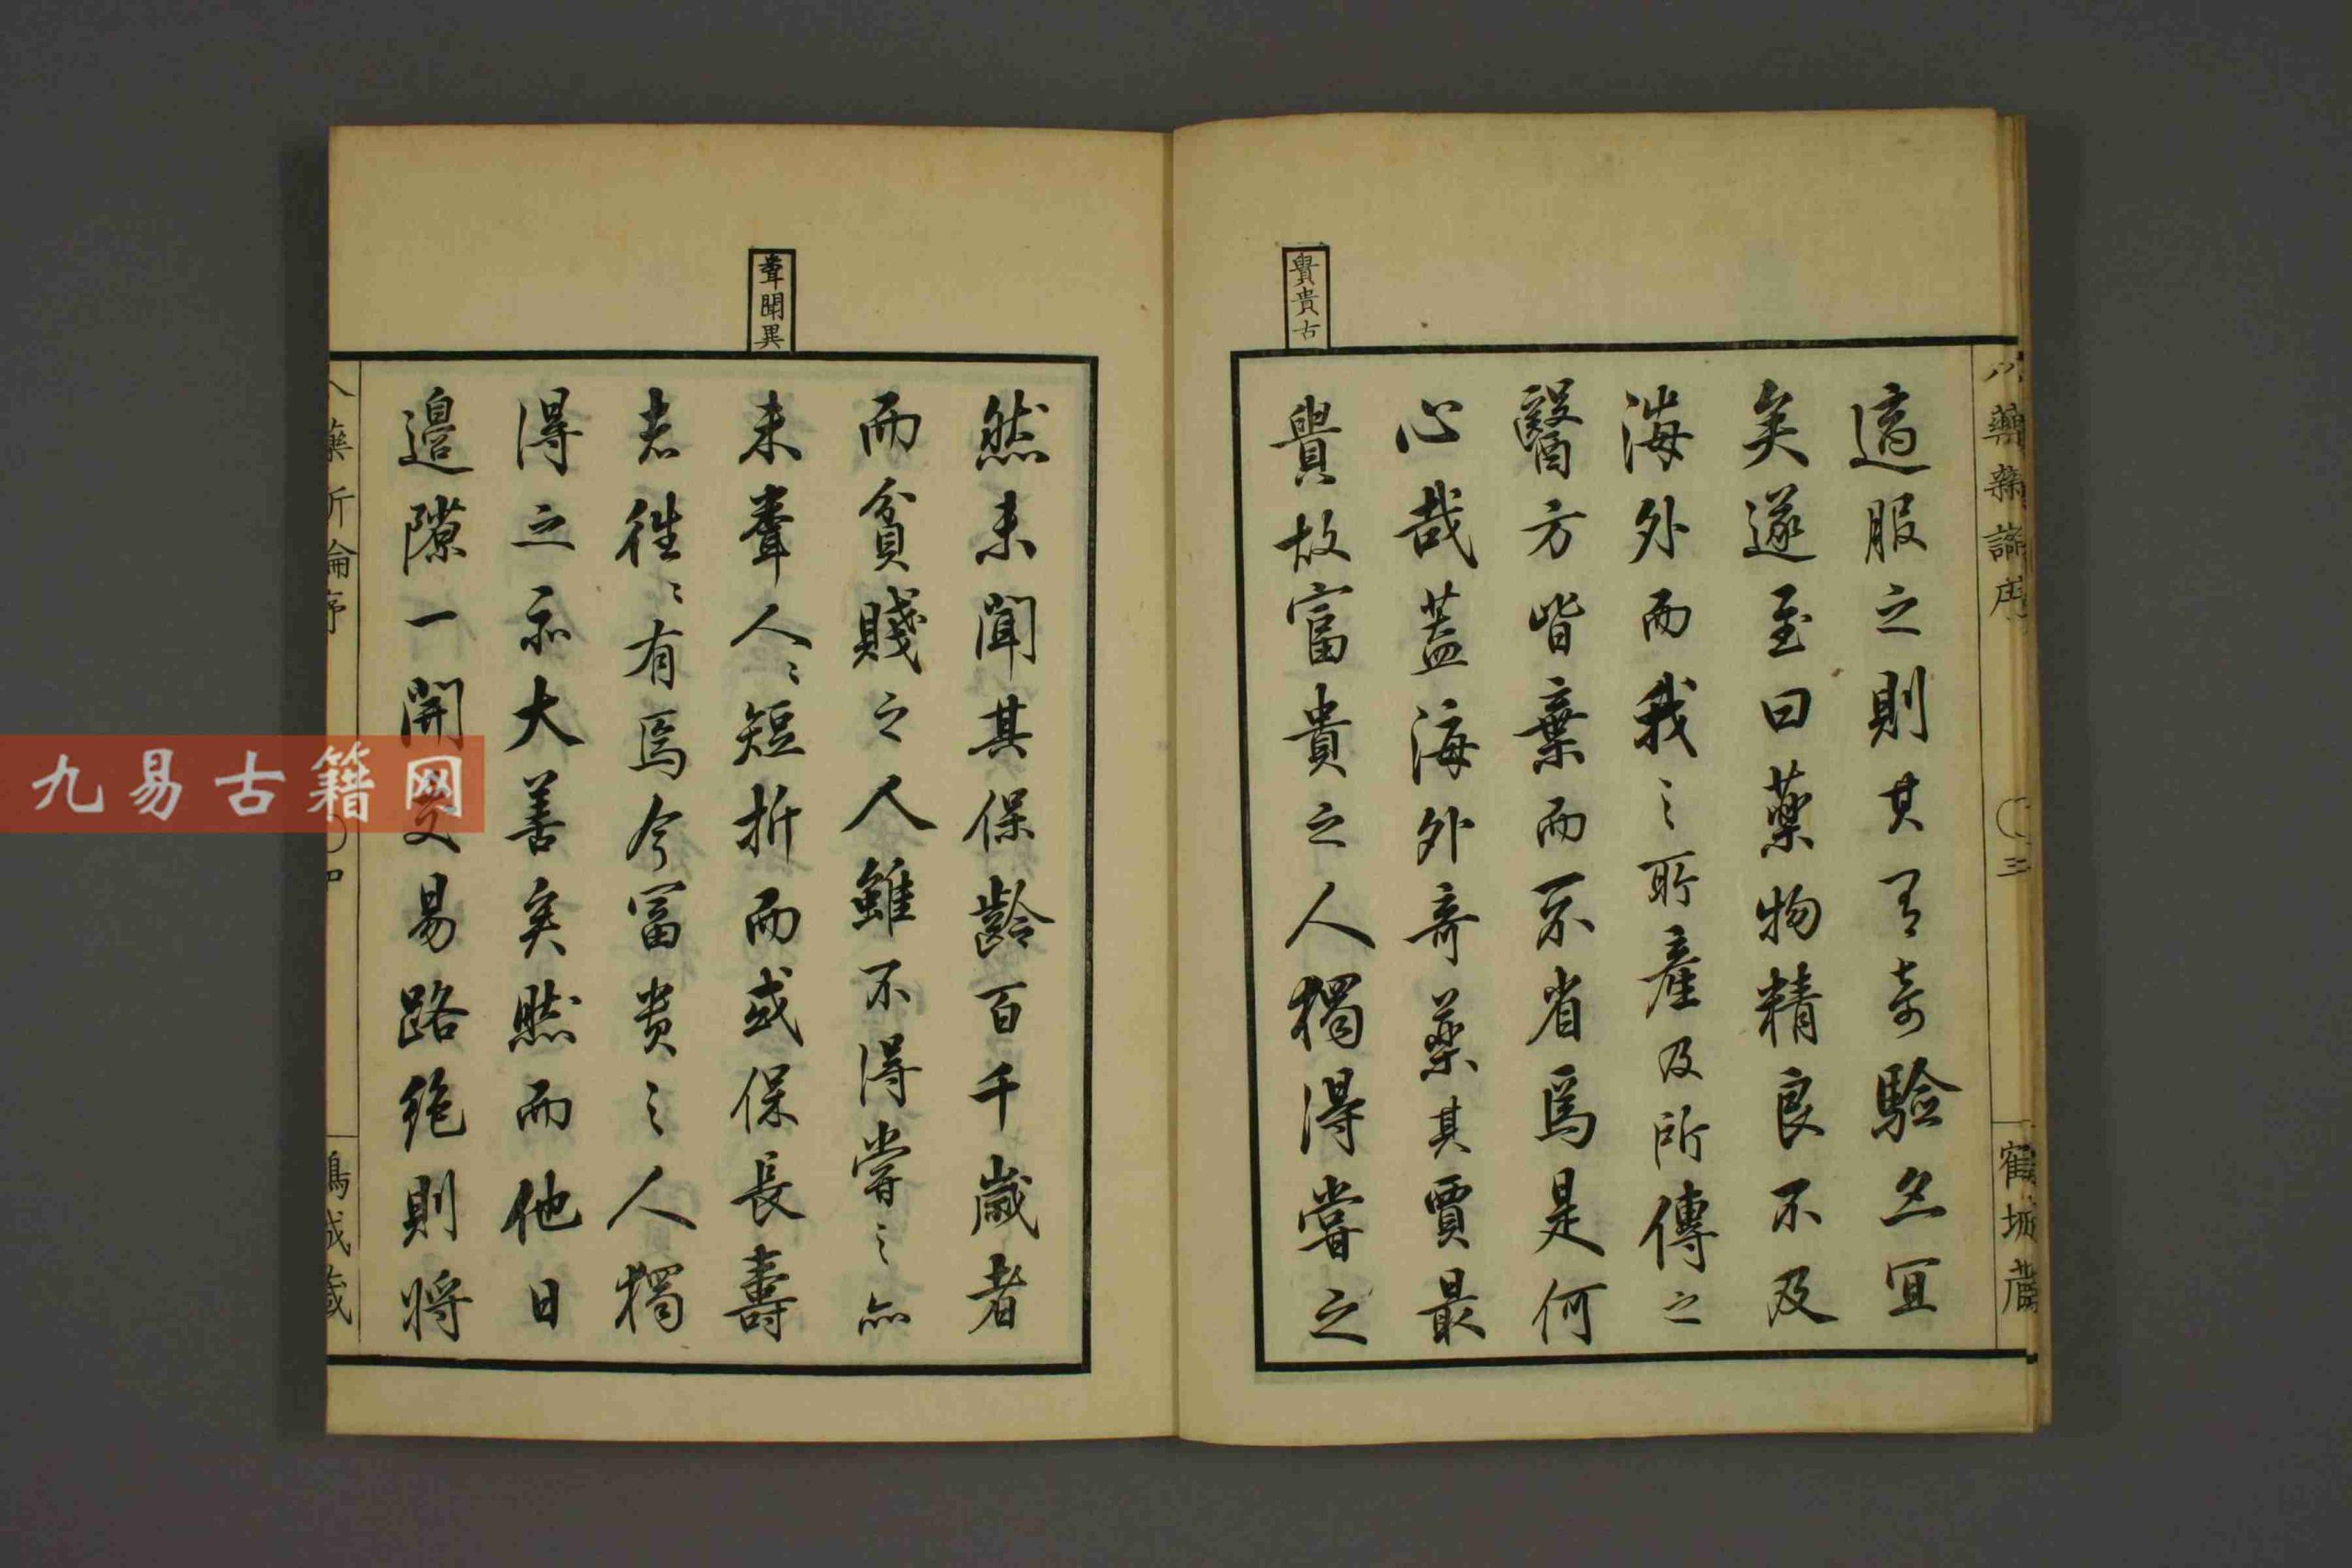 適服之則其有奇驗亦宜
矣遂至曰藥物精良不及
海外而我之所產及所傳之
醫方皆棄而不省爲是何
心哉蓋海外奇藥其賈最
貴故富貴之人獨得嘗之
貴古
鶴城藏
三
然未聞其保齡百千歲者
而貧賤之人雖不得嘗之亦
未聞人〻短折而或保長壽
者往〻有焉今富貴之人獨
得之亦大善矣然而他日
邊隙一開交易路絶則將
聞異
四
九易古籍网